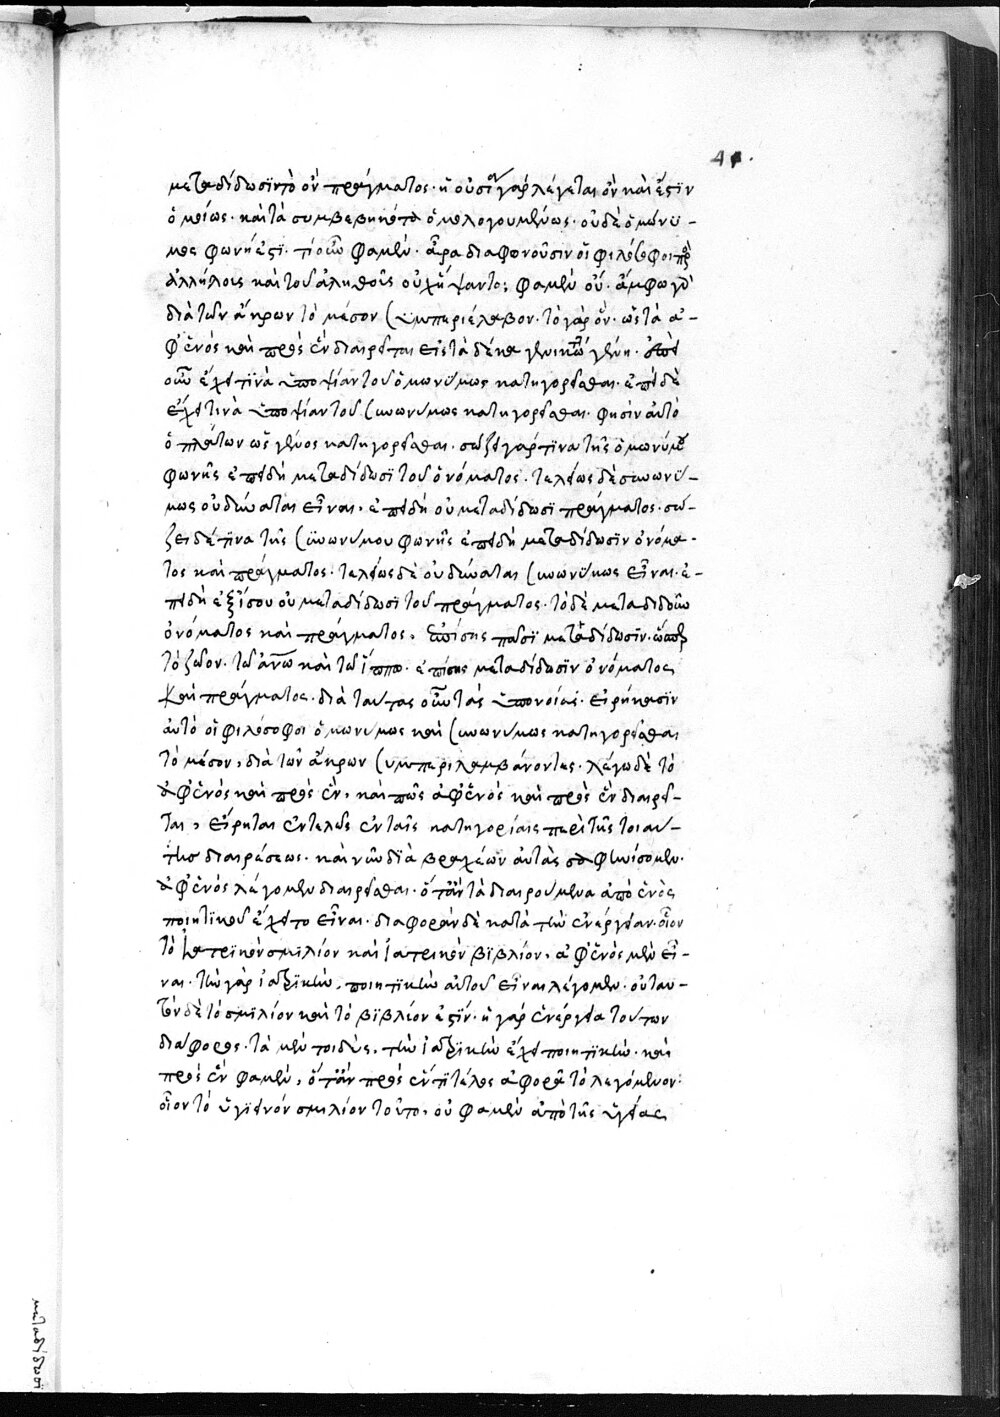 41.
μεταδίδωσϊν τὸ ὂν πράγματος· ἡ οὐσία γὰρ λέγεται ὂν καὶ ἔστϊν
ὁμοίως· καὶ τὰ συμβεβηκότα ὁμολογουμένως· οὐδὲ ὁμώνϋ-
μος φωνή ἐστϊ· τί οὖν φαμὲν· ἆρα διαφωνοῦσιν οἱ φιλόσοφοι πρὸς
ἀλλήλοις καὶ τοῦ ἀληθοῦς οὐχ ἥψαντο; φαμὲν οὔ· ἄμφω γὰρ
διὰ τῶν ἄκρων τὸ μέσον συμπεριέλαβον· τὸ γὰρ ὄν· ὡς τὰ ἀ-
φ' ἑνὸς καὶ πρὸς ἓν διαιρεῖται εἰς τὰ δέκα γενικώτατα γένη·
οὖν ἔχει τϊνὰ ὑποψίαν τοῦ ὁμωνύμως κατηγορεῖσθαι· ἐπεὶ δὲ
ἔχει τινὰ ὑποψίαν τοῦ συνωνύμως κατηγορεῖσθαι· φησὶν αὐτὸ
ὁ πλάτων ὡς γένος κατηγορεῖσθαι· σώζει γάρ τϊνα τῆς ὁμωνύμου
φωνῆς ἐπειδὴ μεταδίδωσϊ τοῦ ὀνόματος· τελείως δὲ συνωνϋ-
μως οὐ δύναται εἶναι· ἐπειδὴ οὐ μεταδίδωσϊ πράγματος· σώ-
ζει δέ τϊνα τῆς συνωνύμου φωνῆς ἐπειδὴ μεταδίδωσϊν ὀνόμα-
τος καὶ πράγματος· τελείως δὲ οὐ δύναται συνωνύμως εἶναι· ἐ-
πειδὴ ἐξίσου οὐ μεταδίδωσϊ τοῦ πράγματος· τὸ δὲ μεταδιδοῦν
ὀνόματος καὶ πράγματος, ἐπίσης πᾶσϊ μεταδίδωσϊν· ὥσπερ
τὸ ζῶον· τῶ ἀνθρώπω καὶ τῶ ἵππω· ἐπίσης μεταδίδωσϊν ὀνόματος
καὶ πράγματος· διὰ ταύτας οὖν τὰς ὑπονοίας· εἰρήκασϊν
αὐτὸ οἱ φιλόσοφοι ὁμωνύμως καὶ συνωνύμως κατηγορεῖσθαι
τὸ μέσον, διὰ τῶν ἄκρων συμπεριλαμβάνοντες· λέγω δὲ τὸ
ἀφ' ἑνὸς καὶ πρὸς ἕν, καὶ πῶς ἀφ' ἑνὸς καὶ πρὸς ἓν διαιρεῖ-
ται, εἴρηται ἐντελῶς ἐν ταῖς κατηγορίαις περὶ τῆς τοιαύ-
της διαιρέσεως· καὶ νῦν δϊὰ βραχέων αὐτὰς σαφηνίσομεν·
ἀφ' ἑνὸς λέγομεν διαιρεῖσθαι· ὅταν τὰ διαιρούμενα ἀπὸ ἑνὸς
ποιητϊκοῦ ἔχει τὸ εἶναι· διαφορὰν δὲ κατὰ τὴν ἐνέργειαν· οἷον
τὸ ἰατρϊκὸν σμϊλίον καὶ ἰατρικὸν βϊβλίον, ἀφ' ἑνὸς μὲν εἶ-
ναι· τὴν γὰρ ἰατρϊκὴν, ποιητϊκὴν αὐτοῦ εἶναι λέγομεν· οὐ ταυ-
τὸν δὲ τὸ σμϊλίον καὶ τὸ βϊβλίον ἐστϊν· ἡ γὰρ ἐνέργεια τούτων
διάφορος· τὰ μὲν τοιάδε, τὴν ἰατρϊκὴν ἔχει ποιητϊκὴν· καὶ
πρὸς ἓν φαμὲν, ὅταν πρὸς ἕν τϊ τέλος ἀφορᾶ τὸ λεγόμενον·
οἷον τὸ ὑγϊεινόν σμιλίον τοῦτο, οὐ φαμὲν ἀπὸ τῆς ὑγείας
μεταδίδωσϊ